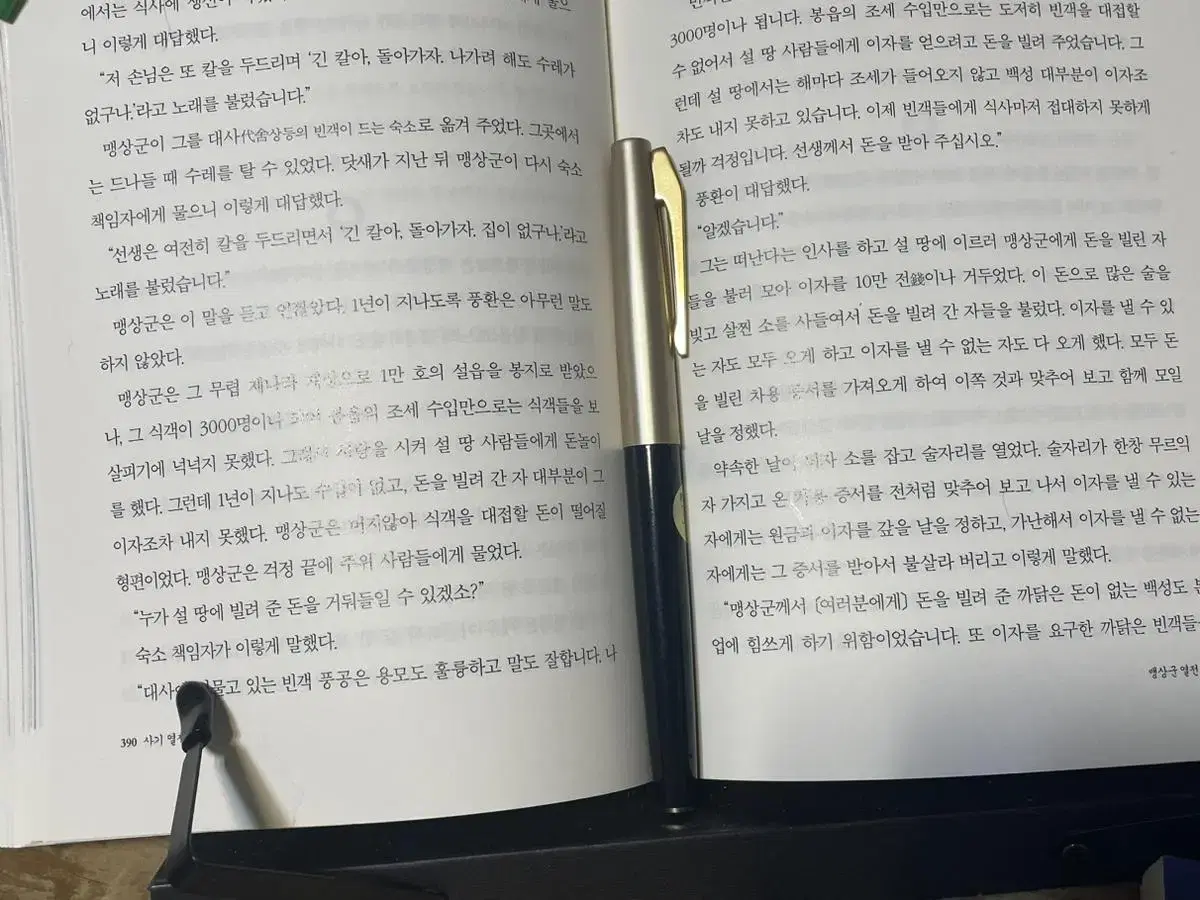 에서는 식사에
니 이렇게 대답했다.
“저 손님은 또 칼을 두드리며 ‘긴 칼아, 돌아가자. 나가려 해도 수레가
없구나.’라고 노래를 불렀습니다.”
맹상군이 그를 대사代舍상등의 빈객이 드는 숙소로 옮겨 주었다. 그곳에서
는 드나들 때 수레를 탈 수 있었다. 닷새가 지난 뒤 맹상군이 다시 숙소
책임자에게 물으니 이렇게 대답했다.
“선생은 여전히 칼을 두드리면서 ‘긴 칼아, 돌아가자. 집이 없구나.’라고
노래를 불렀습니다.”
맹상군은 이 말을 듣고 언짢았다. 1년이 지나도록 풍환은 아무런 말도
하지 않았다.
맹상군은 그 무렵 제나라 재상으로 1만 호의 설읍을 봉지로 받았으
나, 그 식객이 3000명이나 조세 수입만으로는 식객들을 보
살피기에 넉넉지 못했다. 그래서 사람을 시켜 설 땅 사람들에게 돈놀이
를 했다. 그런데 1년이 지나도 수입이 없고, 돈을 빌려 간 자 대부분이 그
이자조차 내지 못했다. 맹상군은 머지않아 식객을 대접할 돈이 떨어질
형편이었다. 맹상군은 걱정 끝에 주위 사람들에게 물었다.
“누가 설 땅에 빌려 준 돈을 거둬들일 수 있겠소?”
숙소 책임자가 이렇게 말했다.
“대사에 머물고 있는 빈객 풍공은 용모도 훌륭하고 말도 잘합니다. 나
390 사기 열전
3000명이나 됩니다. 봉읍의 조세 수입만으로는 도저히 빈객을 대접할
수 없어서 설 땅 사람들에게 이자를 얻으려고 돈을 빌려 주었습니다. 그
런데 설 땅에서는 해마다 조세가 들어오지 않고 백성 대부분이 이자조
차도 내지 못하고 있습니다. 이제 빈객들에게 식사마저 접대하지 못하게
될까 걱정입니다. 선생께서 돈을 받아 주십시오.”
풍환이 대답했다.
“알겠습니다.”
그는 떠난다는 인사를 하고 설 땅에 이르러 맹상군에게 돈을 빌린 자
들을 불러 모아 이자를 10만 전錢이나 거두었다. 이 돈으로 많은 술을
빚고 살찐 소를 사들여서 돈을 빌려 간 자들을 불렀다. 이자를 낼 수 있
는 자도 모두 오게 하고 이자를 낼 수 없는 자도 다 오게 했다. 모두 돈
을 빌린 차용 증서를 가져오게 하여 이쪽 것과 맞추어 보고 함께 모일
날을 정했다.
약속한 날이 되자 소를 잡고 술자리를 열었다. 술자리가 한창 무르익
자 가지고 온 차용 증서를 전처럼 맞추어 보고 나서 이자를 낼 수 있는
자에게는 원금과 이자를 갚을 날을 정하고, 가난해서 이자를 낼 수 없는
자에게는 그 증서를 받아서 불살라 버리고 이렇게 말했다.
“맹상군께서 〔여러분에게〕 돈을 빌려 준 까닭은 돈이 없는 백성도
업에 힘쓰게 하기 위함이었습니다. 또 이자를 요구한 까닭은 빈객들
맹상군 열전